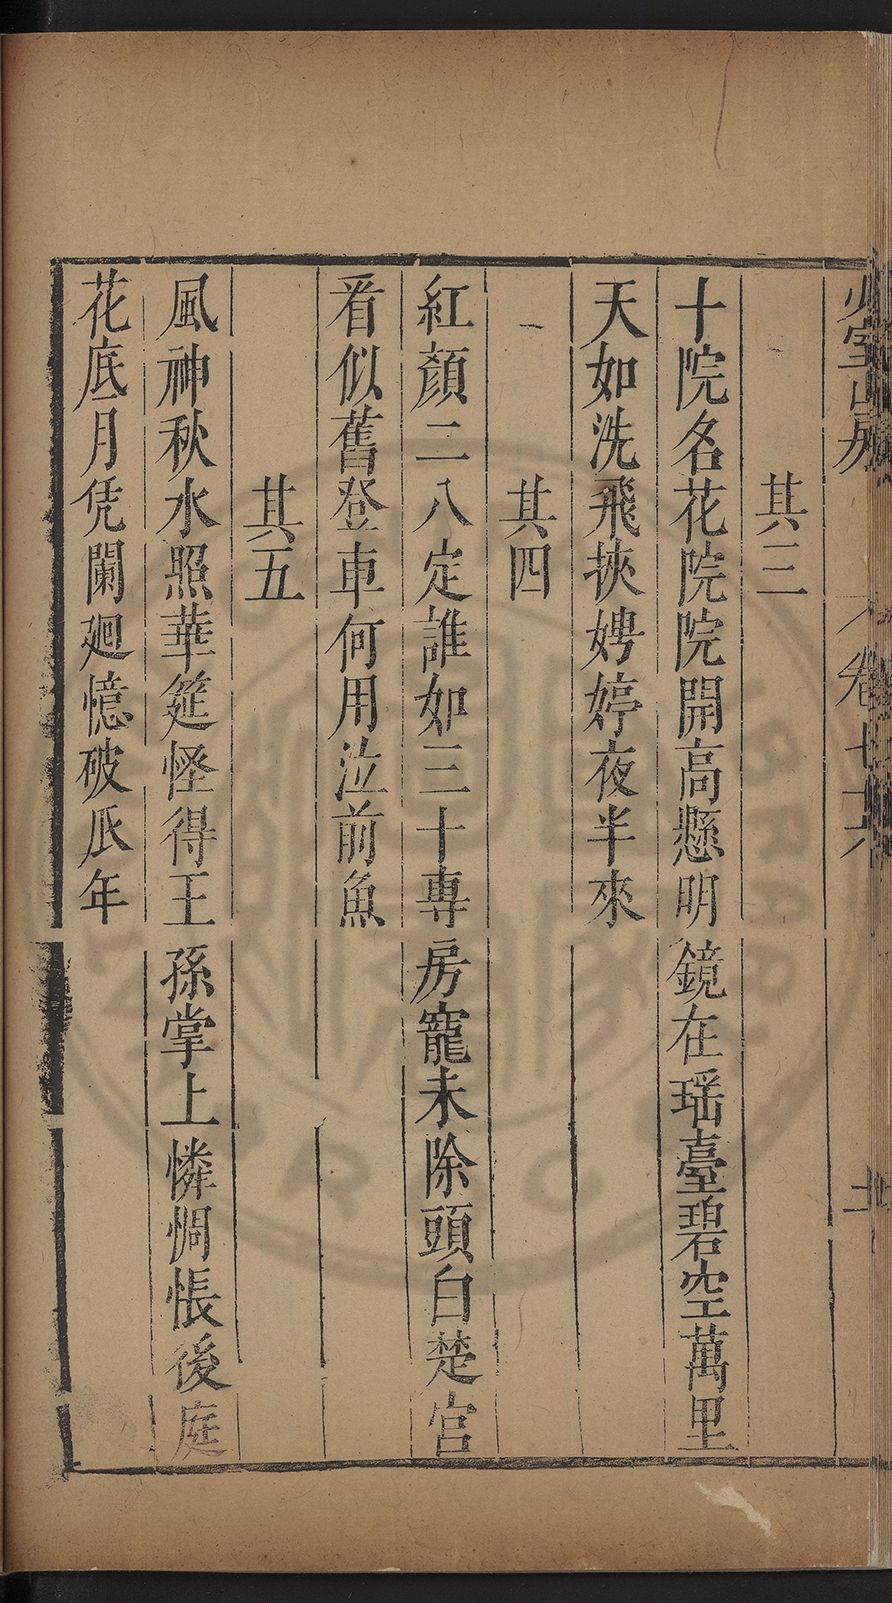 少室山房 卷七十六
其三
十院名花院院開高懸明鏡在瑶臺碧空萬里
天如洗飛挾娉婷夜半來
其四
紅顏二八定誰如三十專房寵未除頭白楚宮
看似舊登車何用泣前魚
其五
風神秋水照華筵怪得王孫掌上憐惆悵後庭
花底月凭闌廻憶破瓜年